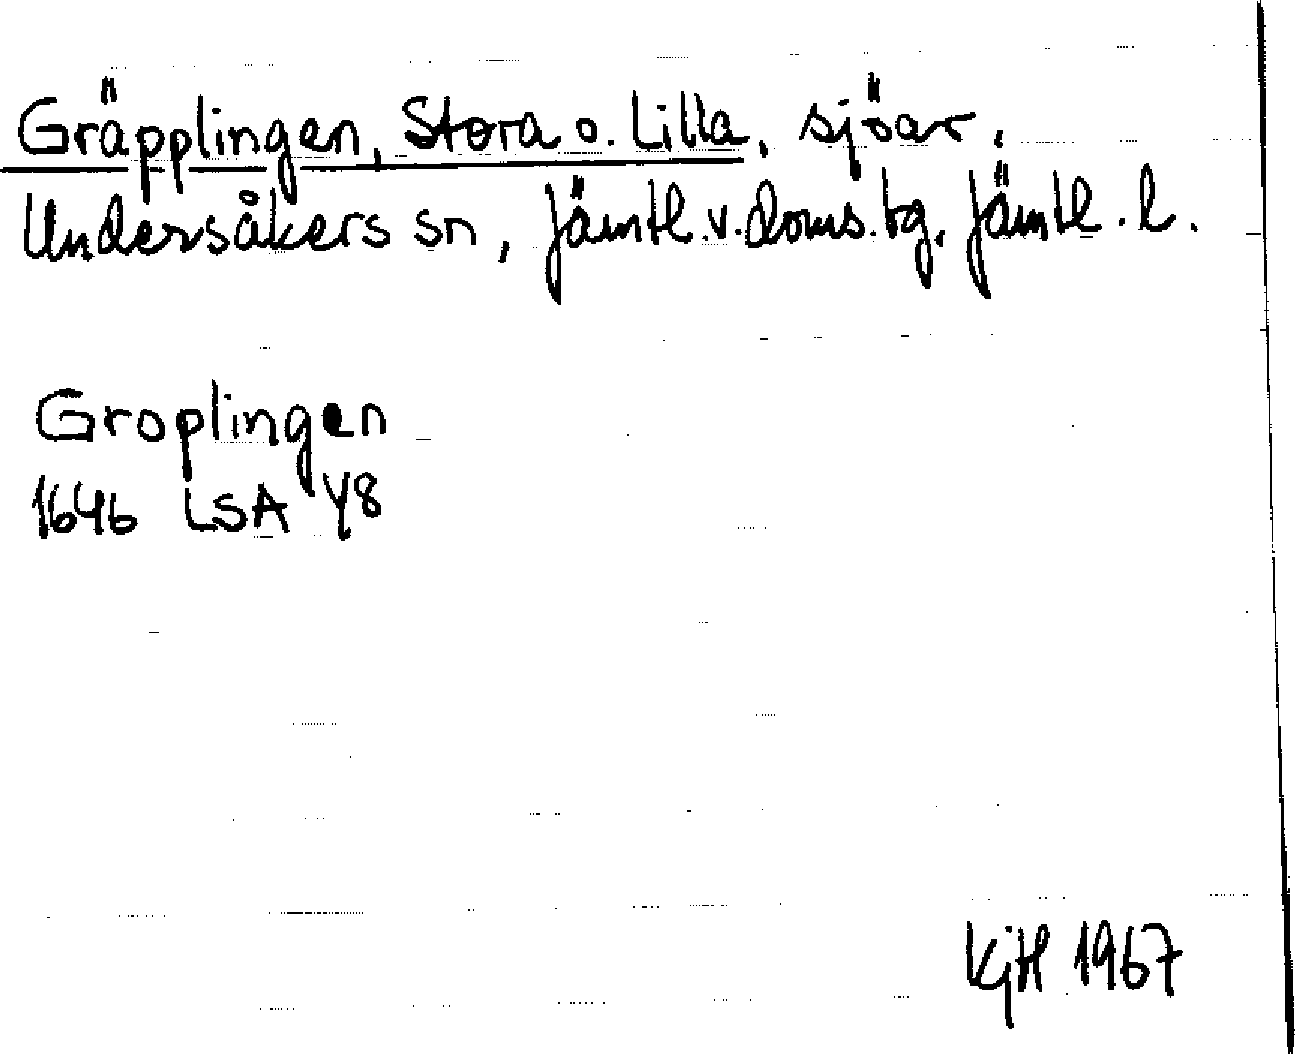 Gräpplingen, Stora o. Lilla, sjöar.
Undersåkers sn, Jämtl.v.doms.tg. Jämtl.l.
Groplingen
1646 LSA Y8
KjH 1967